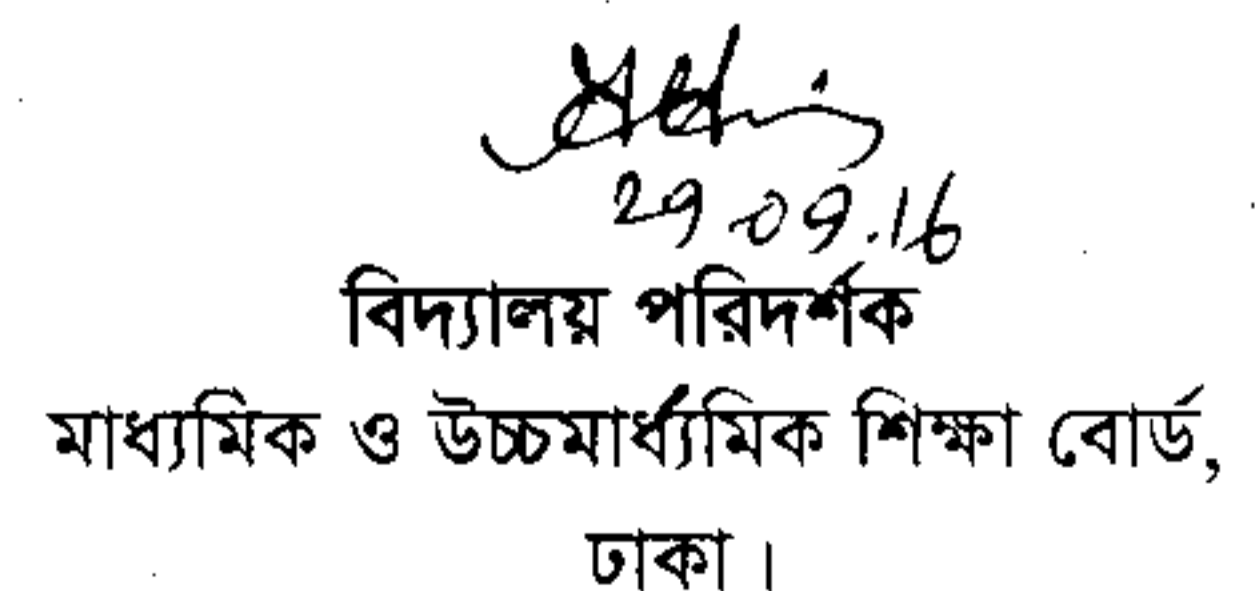 29-09.16
বিদ্যালয় পরিদর্শক
মাধ্যমিক ও উচ্চমার্ধ্যমিক শিক্ষা বোর্ড,
ঢাকা।